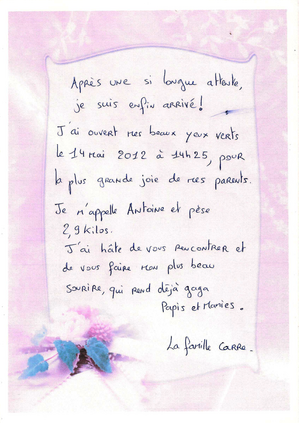 Après une si longue attente,
je suis enfin arrivé !
J'ai ouvert mes beaux yeux verts
le 14 mai 2012 à 14h25, pour
la plus grande joie de mes parents.
Je m'appelle Antoine et pèse
2,9 kilos.
J'ai hâte de vous rencontrer et
de vous faire mon plus beau
sourire, qui rend déjà gaga
Papis et Mamies.
La famille Carré.